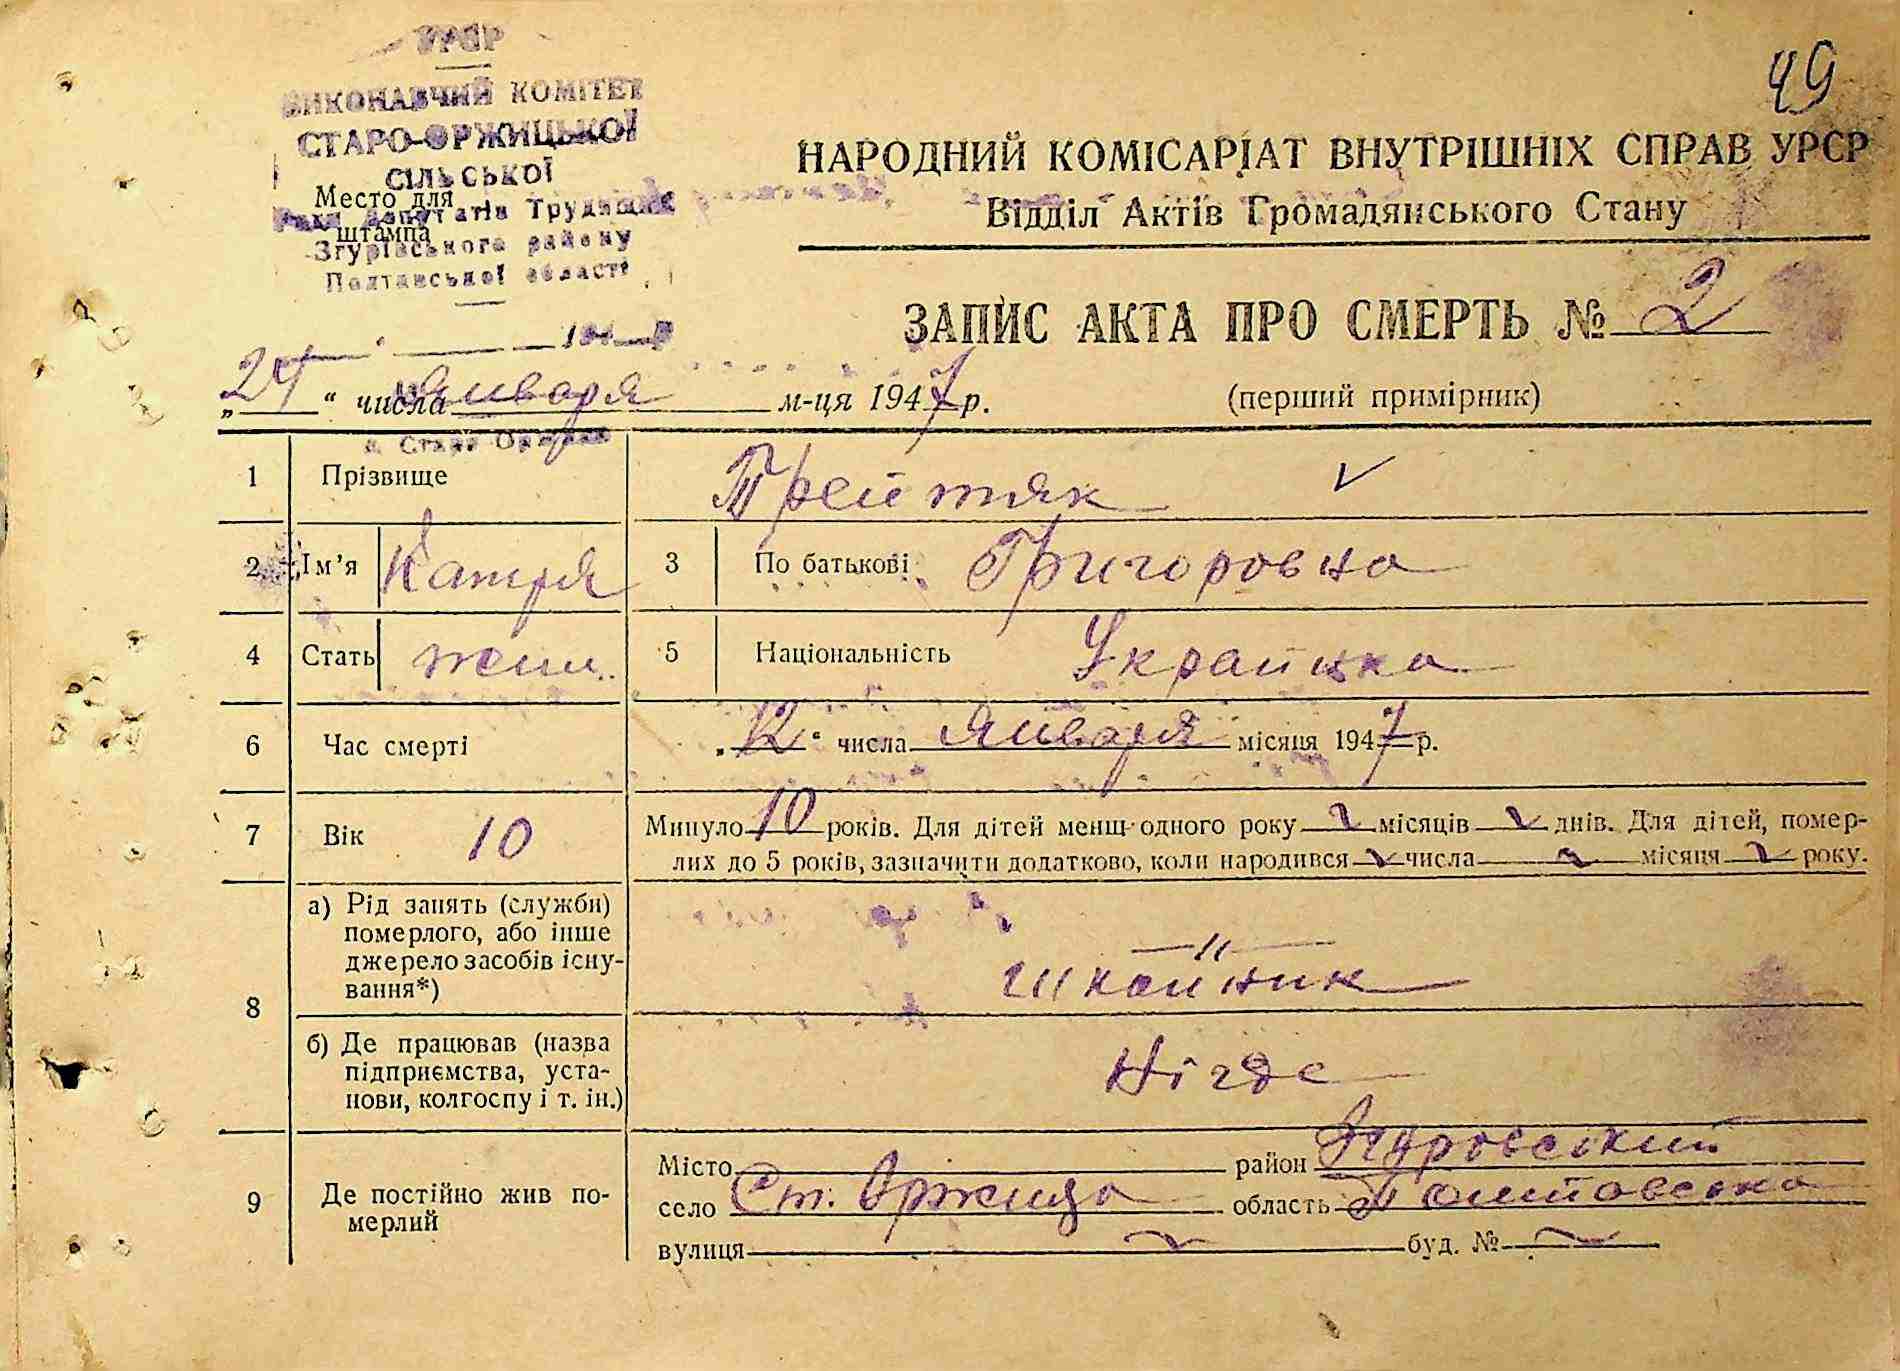 УРСР
49
ВИКОНАВЧИЙ КОМІТЕТ
СТАРО-ОРЖИЦЬКОЇ
СІЛЬСЬКОЇ
Место для
штампа
Ради Депутатів Трудящих
Згурівського району
Полтавської області
НАРОДНИЙ КОМІСАРІАТ ВНУТРІШНІХ СПРАВ УРСР
Відділ Актів Громадянського Стану
ЗАПИС АКТА ПРО СМЕРТЬ № 2
(перший примірник)
„24“ числа января м-ця 1947 р.
с. Стара Оржиця
1 Прізвище Трейтяк
2 Ім'я Катря 3 По батькові Григоровна
4 Стать жен. 5 Національність Украинка
6 Час смерті „12“ числа января місяця 1947 р.
7 Вік 10 Минуло 10 років. Для дітей менш одного року місяців днів. Для дітей, помер-
лих до 5 років, зазначити додатково, коли народився числа місяця року.
8 а) Рід занять (служби)
померлого, або інше
джерело засобів існу-
вання*)
—"—
б) Де працював (назва
підприємства, уста-
нови, колгоспу і т. ін.)
Нігде
9 Де постійно жив по-
мерлий
Місто район Згуровский
село Ст. Оржица область Полтавська
вулиця буд. №